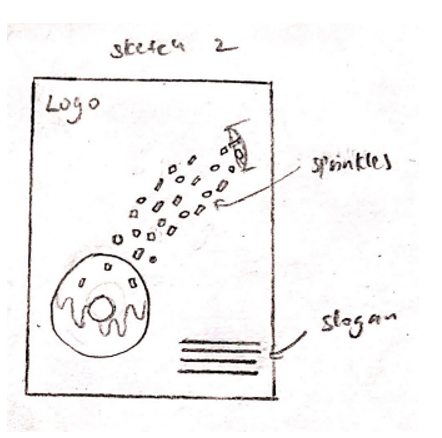 sketch 2
Logo
sprinkles
slogan